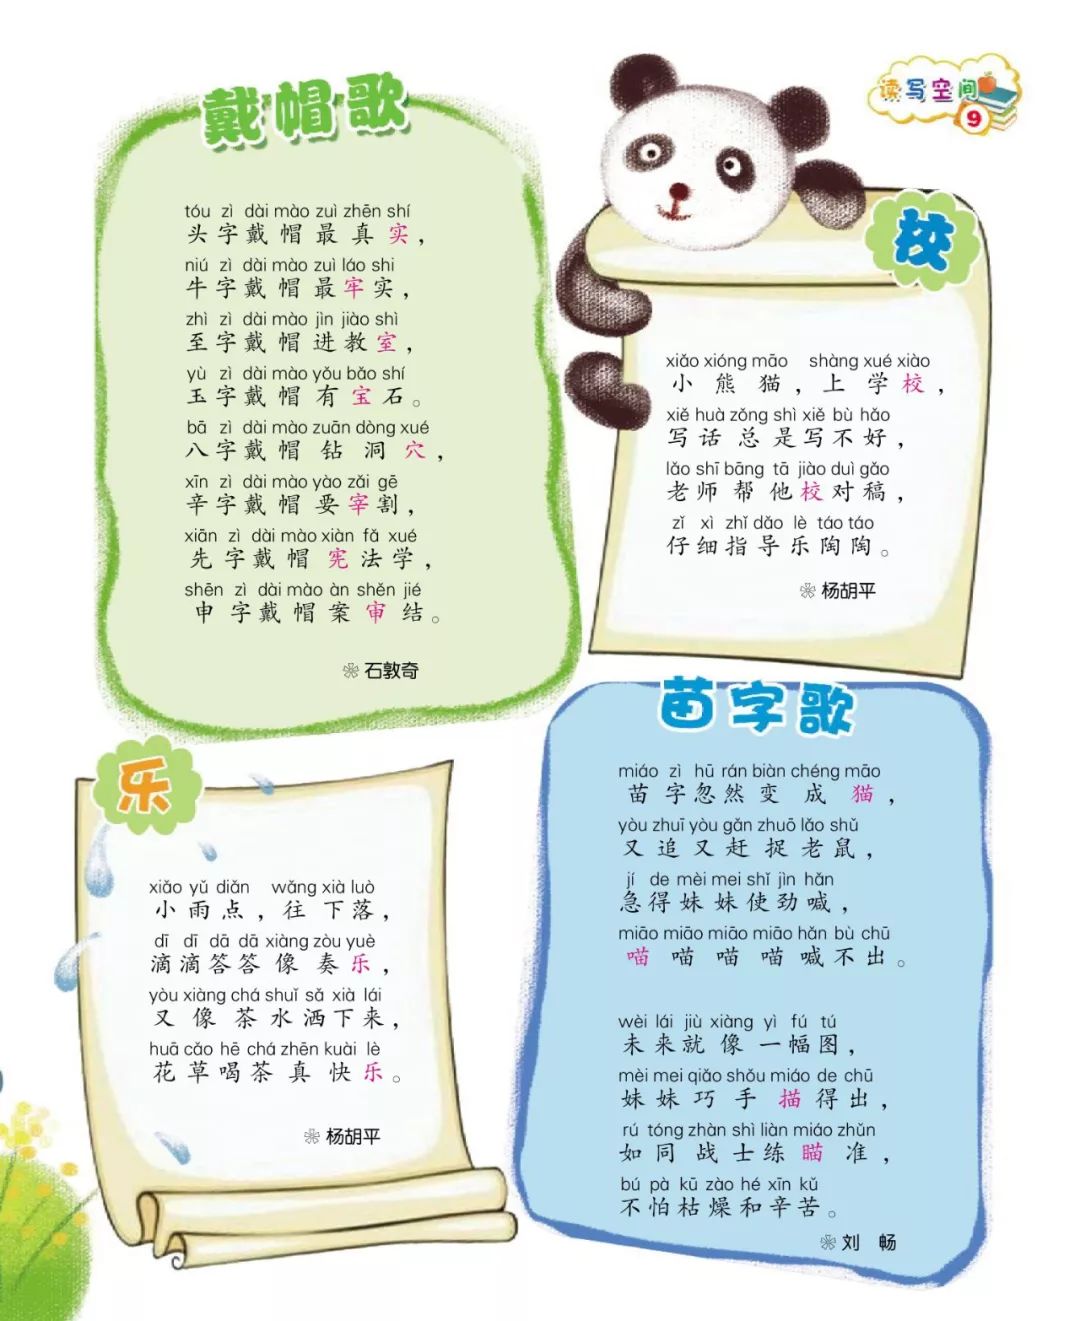 读写空间
9
戴帽歌
tóu zì dài mào zuì zhēn shí
头字戴帽最真实，
niú zì dài mào zuì láo shi
牛字戴帽最牢实，
zhì zì dài mào jìn jiào shì
至字戴帽进教室，
yù zì dài mào yǒu bǎo shí
玉字戴帽有宝石。
bā zì dài mào zuān dòng xué
八字戴帽钻洞穴，
xīn zì dài mào yào zǎi gē
辛字戴帽要宰割，
xiān zì dài mào xiàn fǎ xué
先字戴帽宪法学，
shēn zì dài mào àn shěn jié
申字戴帽案审结。
石敦奇
校
xiǎo xióng māo shàng xué xiào
小熊猫，上学校，
xiě huà zǒng shì xiě bù hǎo
写话总是写不好，
lǎo shī bāng tā jiào duì gǎo
老师帮他校对稿，
zǐ xì zhǐ dǎo lè táo táo
仔细指导乐陶陶。
杨胡平
乐
xiǎo yǔ diǎn wǎng xià luò
小雨点，往下落，
dī dī dā dā xiàng zòu yuè
滴滴答答像奏乐，
yòu xiàng chá shuǐ sǎ xià lái
又像茶水洒下来，
huā cǎo hē chá zhēn kuài lè
花草喝茶真快乐。
杨胡平
苗字歌
miáo zì hū rán biàn chéng māo
苗字忽然变成猫，
yòu zhuī yòu gǎn zhuō lǎo shǔ
又追又赶捉老鼠，
jí de mèi mei shǐ jìn hǎn
急得妹妹使劲喊，
miāo miāo miāo miāo hǎn bù chū
喵喵喵喵喊不出。
wèi lái jiù xiàng yì fú tú
未来就像一幅图，
mèi mei qiǎo shǒu miáo de chū
妹妹巧手描得出，
rú tóng zhàn shì liàn miáo zhǔn
如同战士练瞄准，
bú pà kū zào hé xīn kǔ
不怕枯燥和辛苦。
刘 畅